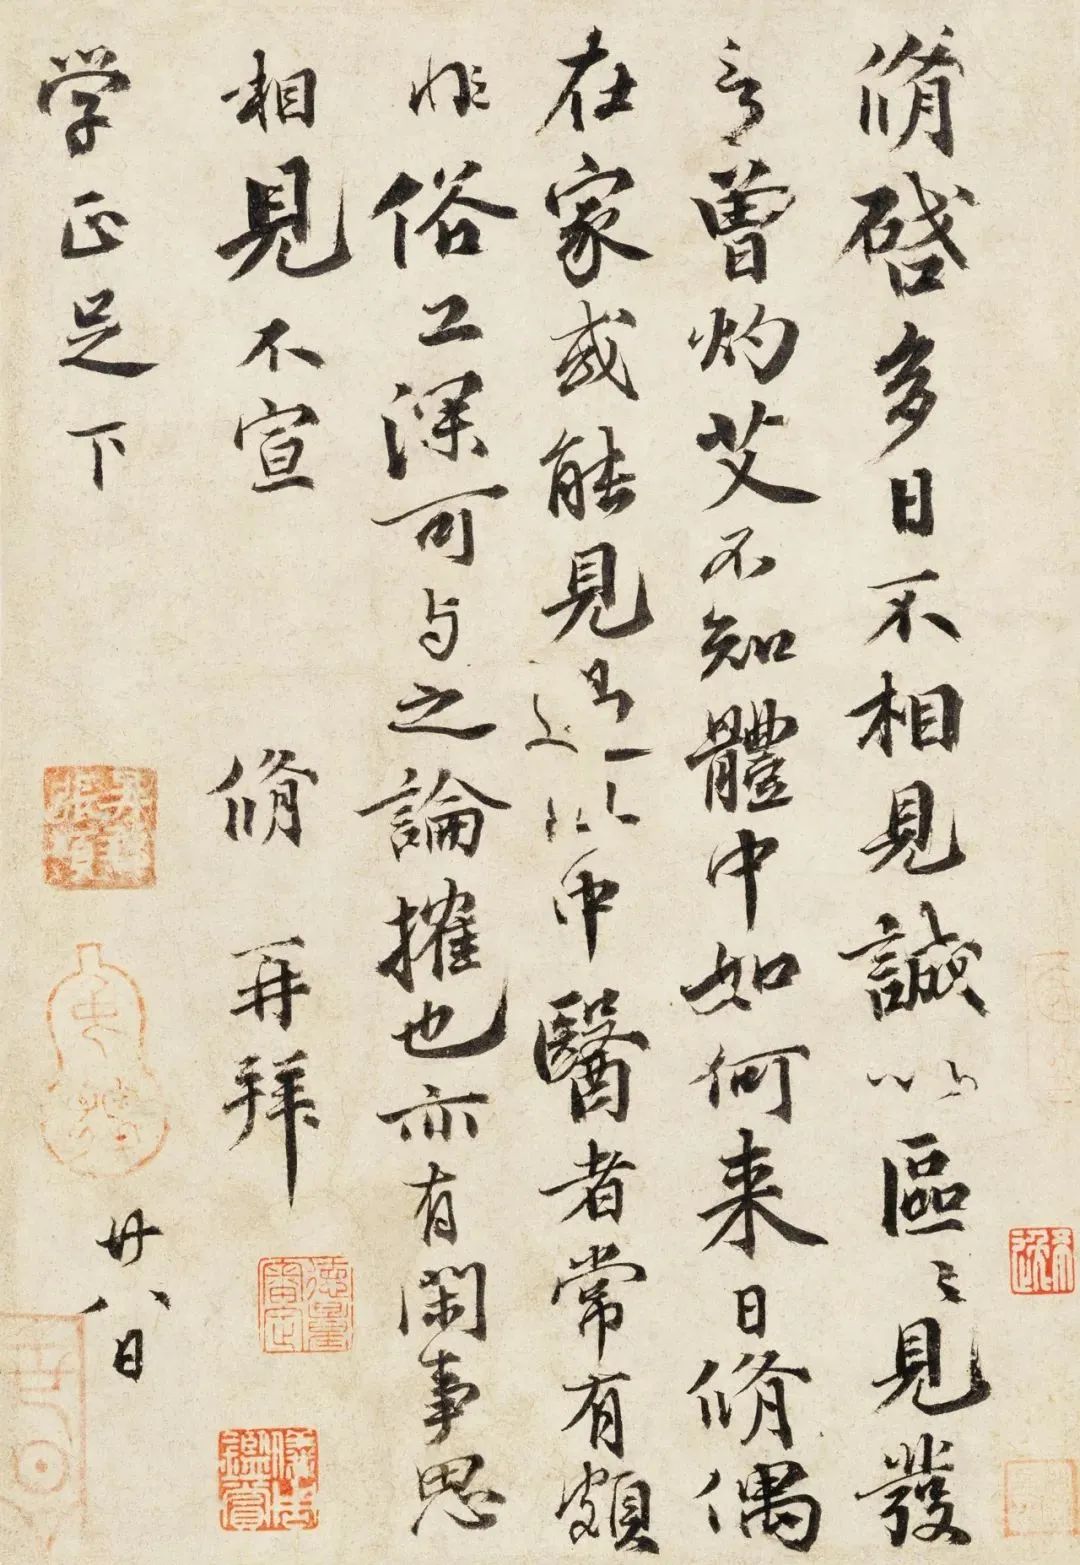 脩啓多日不相見誠以區〻見發
言曾灼艾不知體中如何来日脩偶
在家或能見過此中醫者常有頗
非俗工深可与之論搉也亦有閑事思
相見不宣 脩再拜
学正足下 廿八日
德量審定
儀周鑑賞